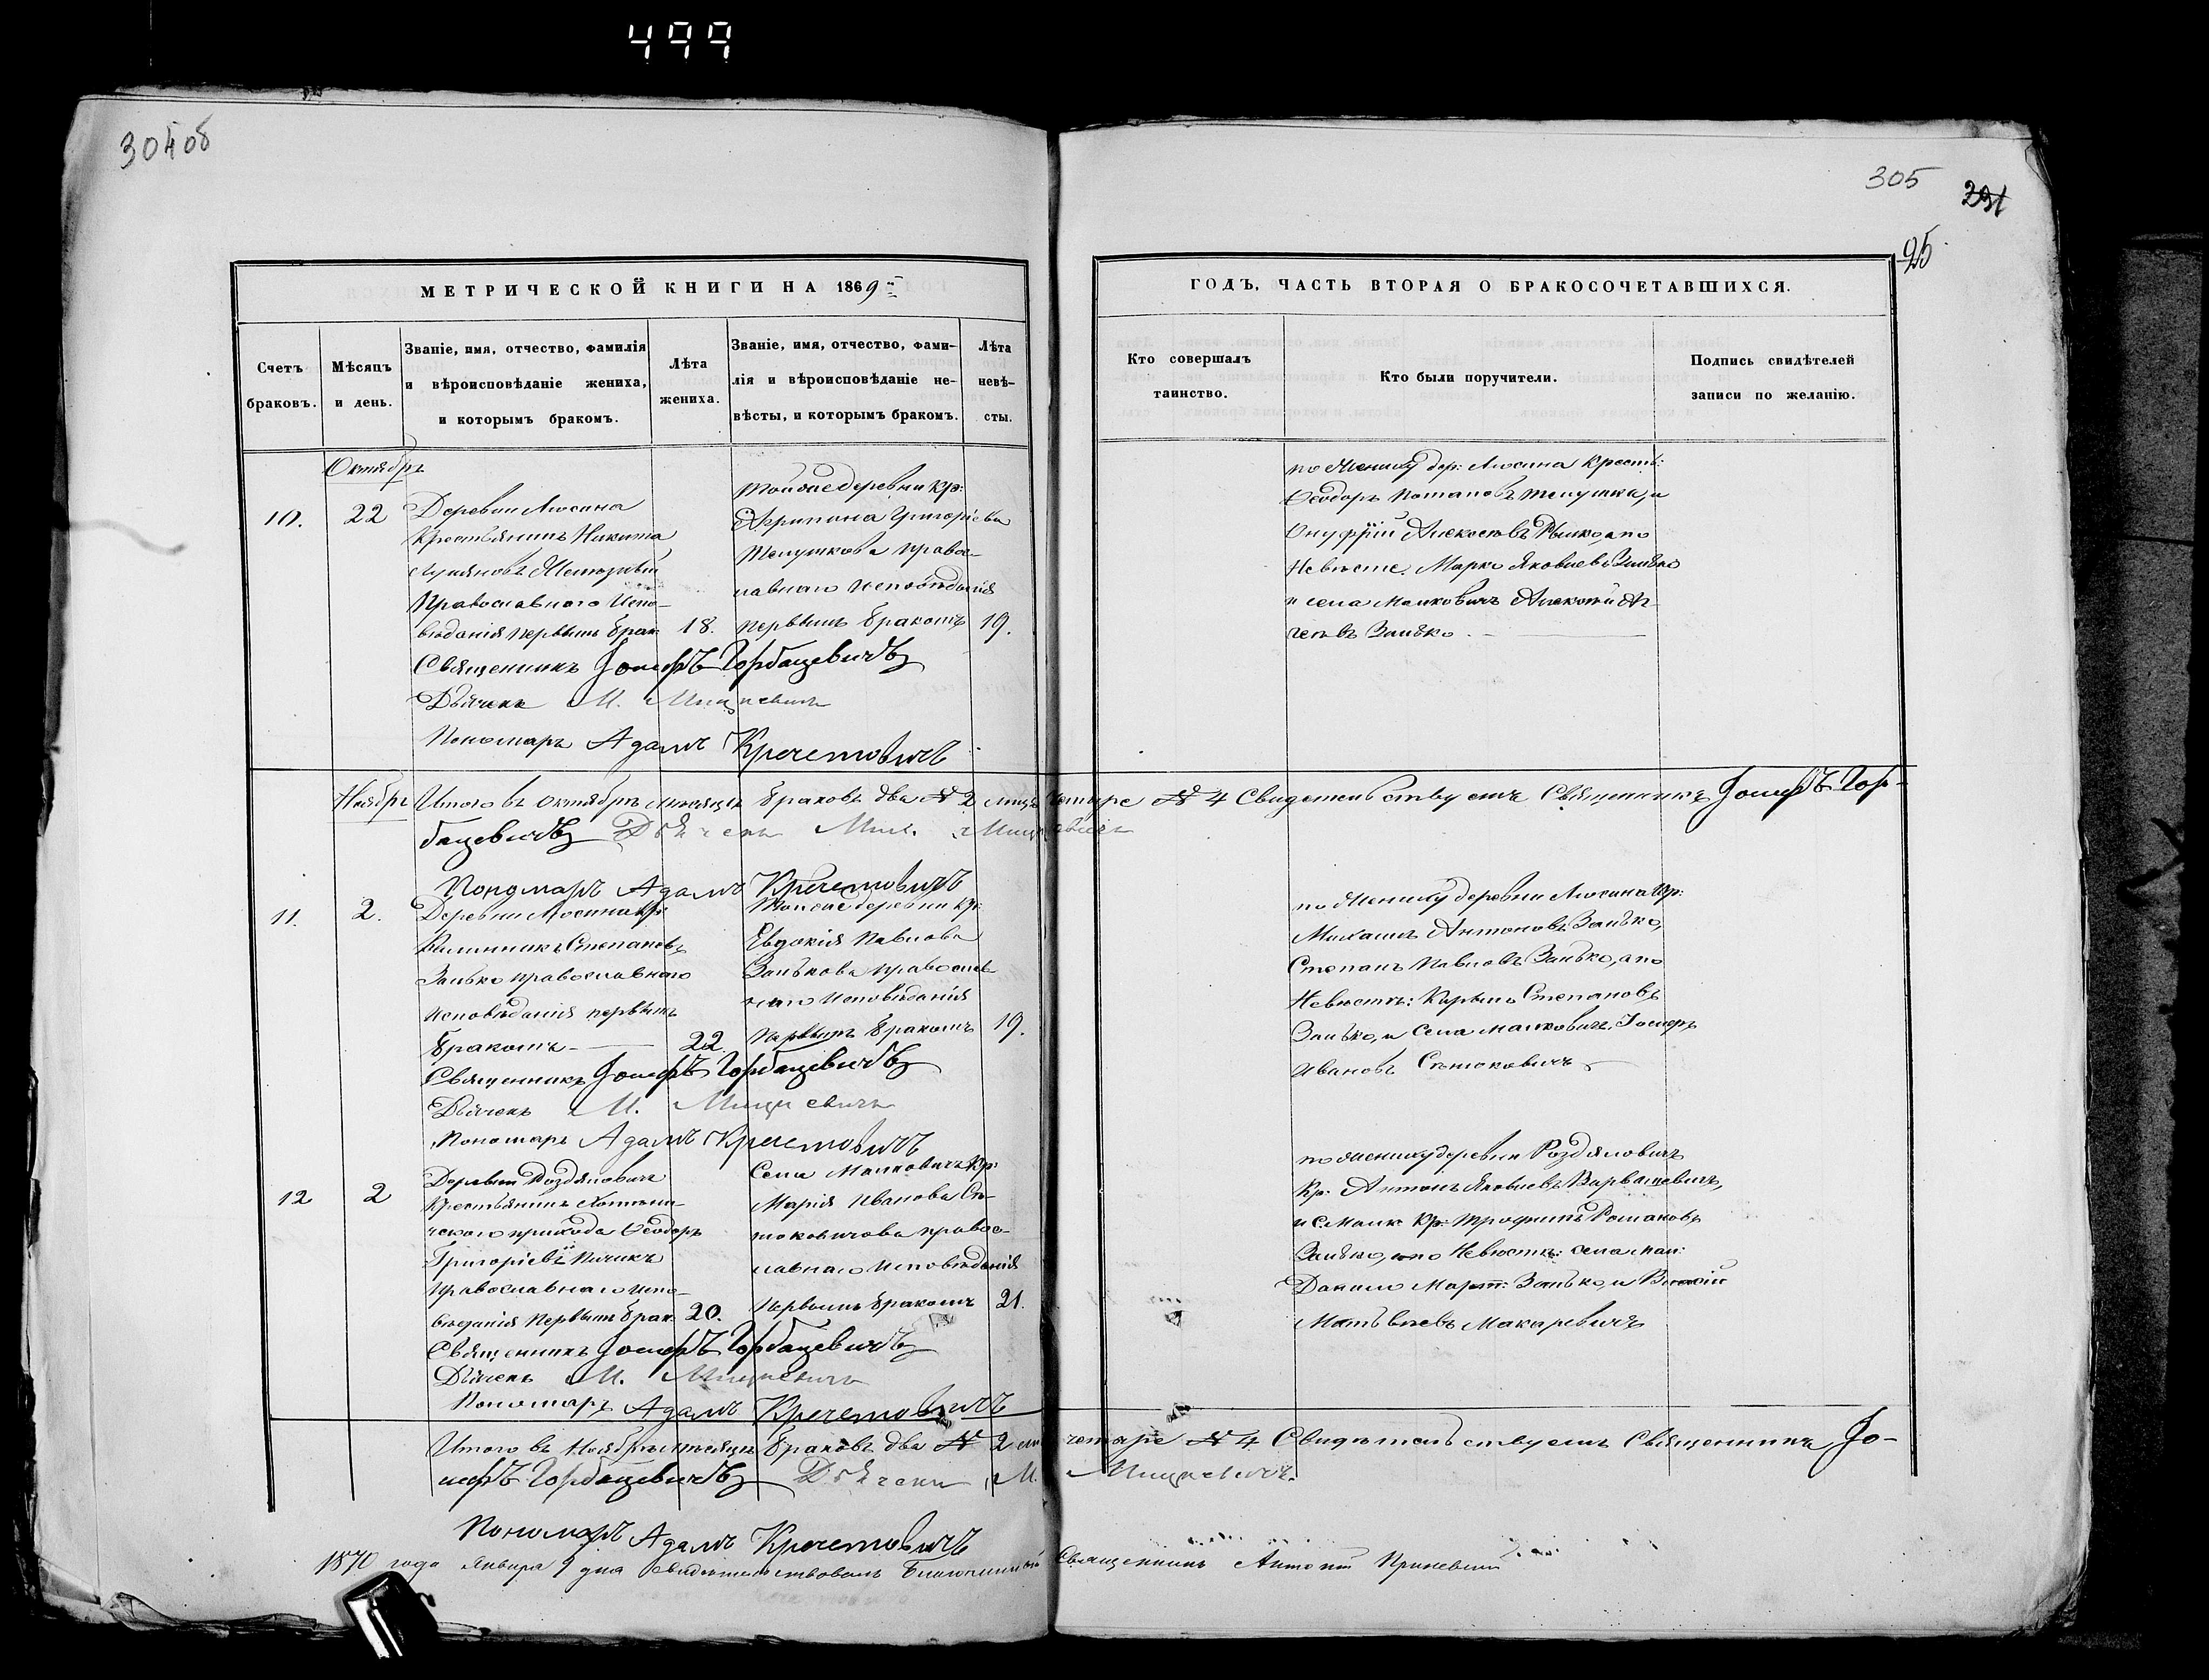 499
304 об
305
291
95
МЕТРИЧЕСКОЙ КНИГИ НА 1869
Счетъ браковъ.
Мѣсяцъ и день.
Званіе, имя, отчество, фамилія
и вѣроисповѣданіе жениха,
и которымъ бракомъ.
Лѣта жениха.
Званіе, имя, отчество, фами-
лія и вѣроисповѣданіе не-
вѣсты, и которымъ бракомъ.
Лѣта невѣ-
сты.
ГОДЪ, ЧАСТЬ ВТОРАЯ О БРАКОСОЧЕТАВШИХСЯ.
Кто совершалъ
таинство.
Кто были поручители.
Подпись свидѣтелей
записи по желанію.
Октябрь
10.
22
Деревни Люсина
Крестьянинъ Никита
Православнаго Испо-
вѣданія первымъ брак
18.
Тойже деревни кр:
Агрипина Григоріева
Телушкова правос-
лавнаго исповѣданія
первымъ бракомъ
19.
по Жениху дер: Люсина Крест:
Ѳеодоръ Потаповъ Телушка, и
Онуфрій Алексѣевъ а по
Невѣсте: Марко Яковлевъ Занько
и села Малковичъ Алексѣй
Занько
Священникъ Іосифъ Горбацевичъ
Дьячекъ М. Мицкевичъ
Пономарь Адамъ Кречетовичъ
Ноябрь
Итого въ Октябрѣ мѣсяцѣ браковъ два № 2 лицъ четыре № 4 Свидетельствуетъ Священникъ Іосифъ Гор-
бацевичъ Дьячекъ Мих. Мицкевичъ
Пономарь Адамъ Кречетовичъ
11.
2.
Деревни Люсина кр:
Калинникъ Степановъ
Занько православнаго
исповѣданія первымъ
бракомъ
22.
Тойже деревни кр:
Евдокія Павлова
Занькова правосла-
наго исповѣданія
первымъ бракомъ
19.
по Жениху деревни Люсина кр:
Михаилъ Антоновъ Занько,
Степанъ Павловъ Занько, а по
Невѣстѣ: Карпъ Степановъ
Занько, и села Малковичъ Іосифъ
Ивановъ
Священникъ Іосифъ Горбацевичъ
Дьячекъ М. Мицкевичъ
Пономарь Адамъ Кречетовичъ
12
2
Деревни Роздяловичъ
Крестьянинъ Хотыни-
ческаго прихода Ѳеодоръ
Григоріевъ
православнаго испо-
вѣданія первымъ брак.
20.
Села Малковичъ кр:
Марія Иванова
правос-
лавнаго исповѣданія
первымъ бракомъ
21.
по жениху деревни Роздяловичъ
Кр: Антонъ Яковлевъ Варвашевичъ,
и с: Малк кр: Трофимъ Романовъ
Занько, а по Невѣсте: села мал:
Данило Март: Занько, и
Матвѣевъ Макаревичъ
Священникъ Іосифъ Горбацевичъ
Дьячекъ М. Мицкевичъ
Пономарь Адамъ Кречетовичъ
Итого въ Ноябрѣ мѣсяцѣ браковъ два № 2 лицъ четыре № 4 Свидѣтельствуетъ Священникъ Іо-
сифъ Горбацевичъ Дьячекъ М. Мицкевичъ.
Пономарь Адамъ Кречетовичъ
1870 года Января 9 дня свидѣтельствовалъ Благочинный Священникъ Антоній